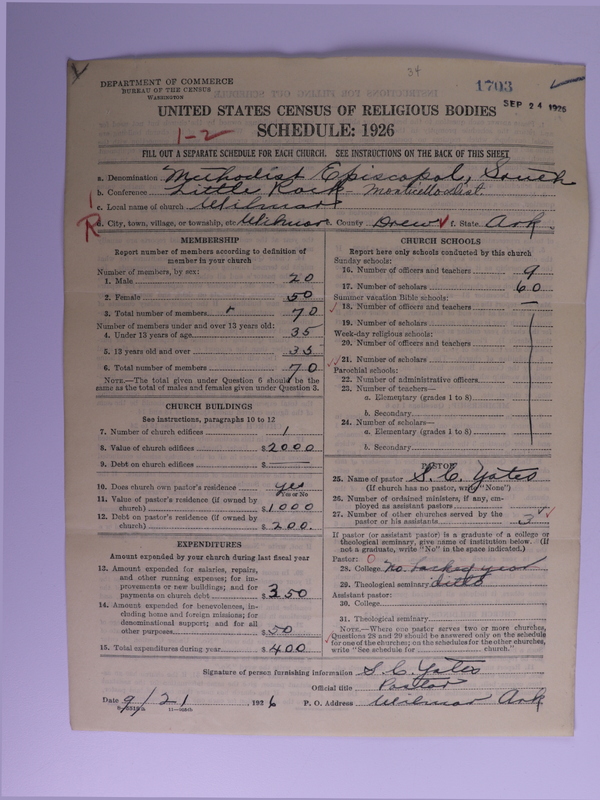 34
1703
SEP 24 1926
DEPARTMENT OF COMMERCE
BUREAU OF THE CENSUS
WASHINGTON
UNITED STATES CENSUS OF RELIGIOUS BODIES
1-2
SCHEDULE: 1926
FILL OUT A SEPARATE SCHEDULE FOR EACH CHURCH. SEE INSTRUCTIONS ON THE BACK OF THIS SHEET
a. Denomination Methodist Episcopal, South
b. Conference Little Rock - Monticello Dist.
c. Local name of church Wilmar
d. City, town, village, or township, etc. Wilmar e. County Drew f. State Ark.
MEMBERSHIP
Report number of members according to definition of
member in your church
Number of members, by sex:
1. Male 20
2. Female 50
3. Total number of members 70
Number of members under and over 13 years old:
4. Under 13 years of age 35
5. 13 years old and over 35
6. Total number of members 70
NOTE.—The total given under Question 6 should be the
same as the total of males and females given under Question 3.
CHURCH BUILDINGS
See instructions, paragraphs 10 to 12
7. Number of church edifices 1
8. Value of church edifices $2000
9. Debt on church edifices $
10. Does church own pastor's residence yes
Yes or No
11. Value of pastor's residence (if owned by
church) $1000
12. Debt on pastor's residence (if owned by
church) $200.
EXPENDITURES
Amount expended by your church during last fiscal year
13. Amount expended for salaries, repairs,
and other running expenses; for im-
provements or new buildings; and for
payments on church debt $350
14. Amount expended for benevolences, in-
cluding home and foreign missions; for
denominational support; and for all
other purposes $50
15. Total expenditures during year $400
CHURCH SCHOOLS
Report here only schools conducted by this church
Sunday schools:
16. Number of officers and teachers 9
17. Number of scholars 60
Summer vacation Bible schools:
18. Number of officers and teachers —
19. Number of scholars
Week-day religious schools:
20. Number of officers and teachers
21. Number of scholars
Parochial schools:
22. Number of administrative officers
23. Number of teachers—
a. Elementary (grades 1 to 8)
b. Secondary
24. Number of scholars—
a. Elementary (grades 1 to 8)
b. Secondary
PASTOR
25. Name of pastor S. C. Yates
(If church has no pastor, write "None")
26. Number of ordained ministers, if any, em-
ployed as assistant pastors
27. Number of other churches served by the
pastor or his assistants 3
If pastor (or assistant pastor) is a graduate of a college or
theological seminary, give name of institution below. (If
not a graduate, write "No" in the space indicated.)
Pastor: 0
28. College No. lacked year
29. Theological seminary ditto
Assistant pastor:
30. College
31. Theological seminary
NOTE.—Where one pastor serves two or more churches,
Questions 28 and 29 should be answered only on the schedule
for one of the churches; on the schedules for the other churches,
write "See schedule for church."
Signature of person furnishing information S. C. Yates
Official title Pastor
Date 9/21, 1926 P. O. Address Wilmar Ark